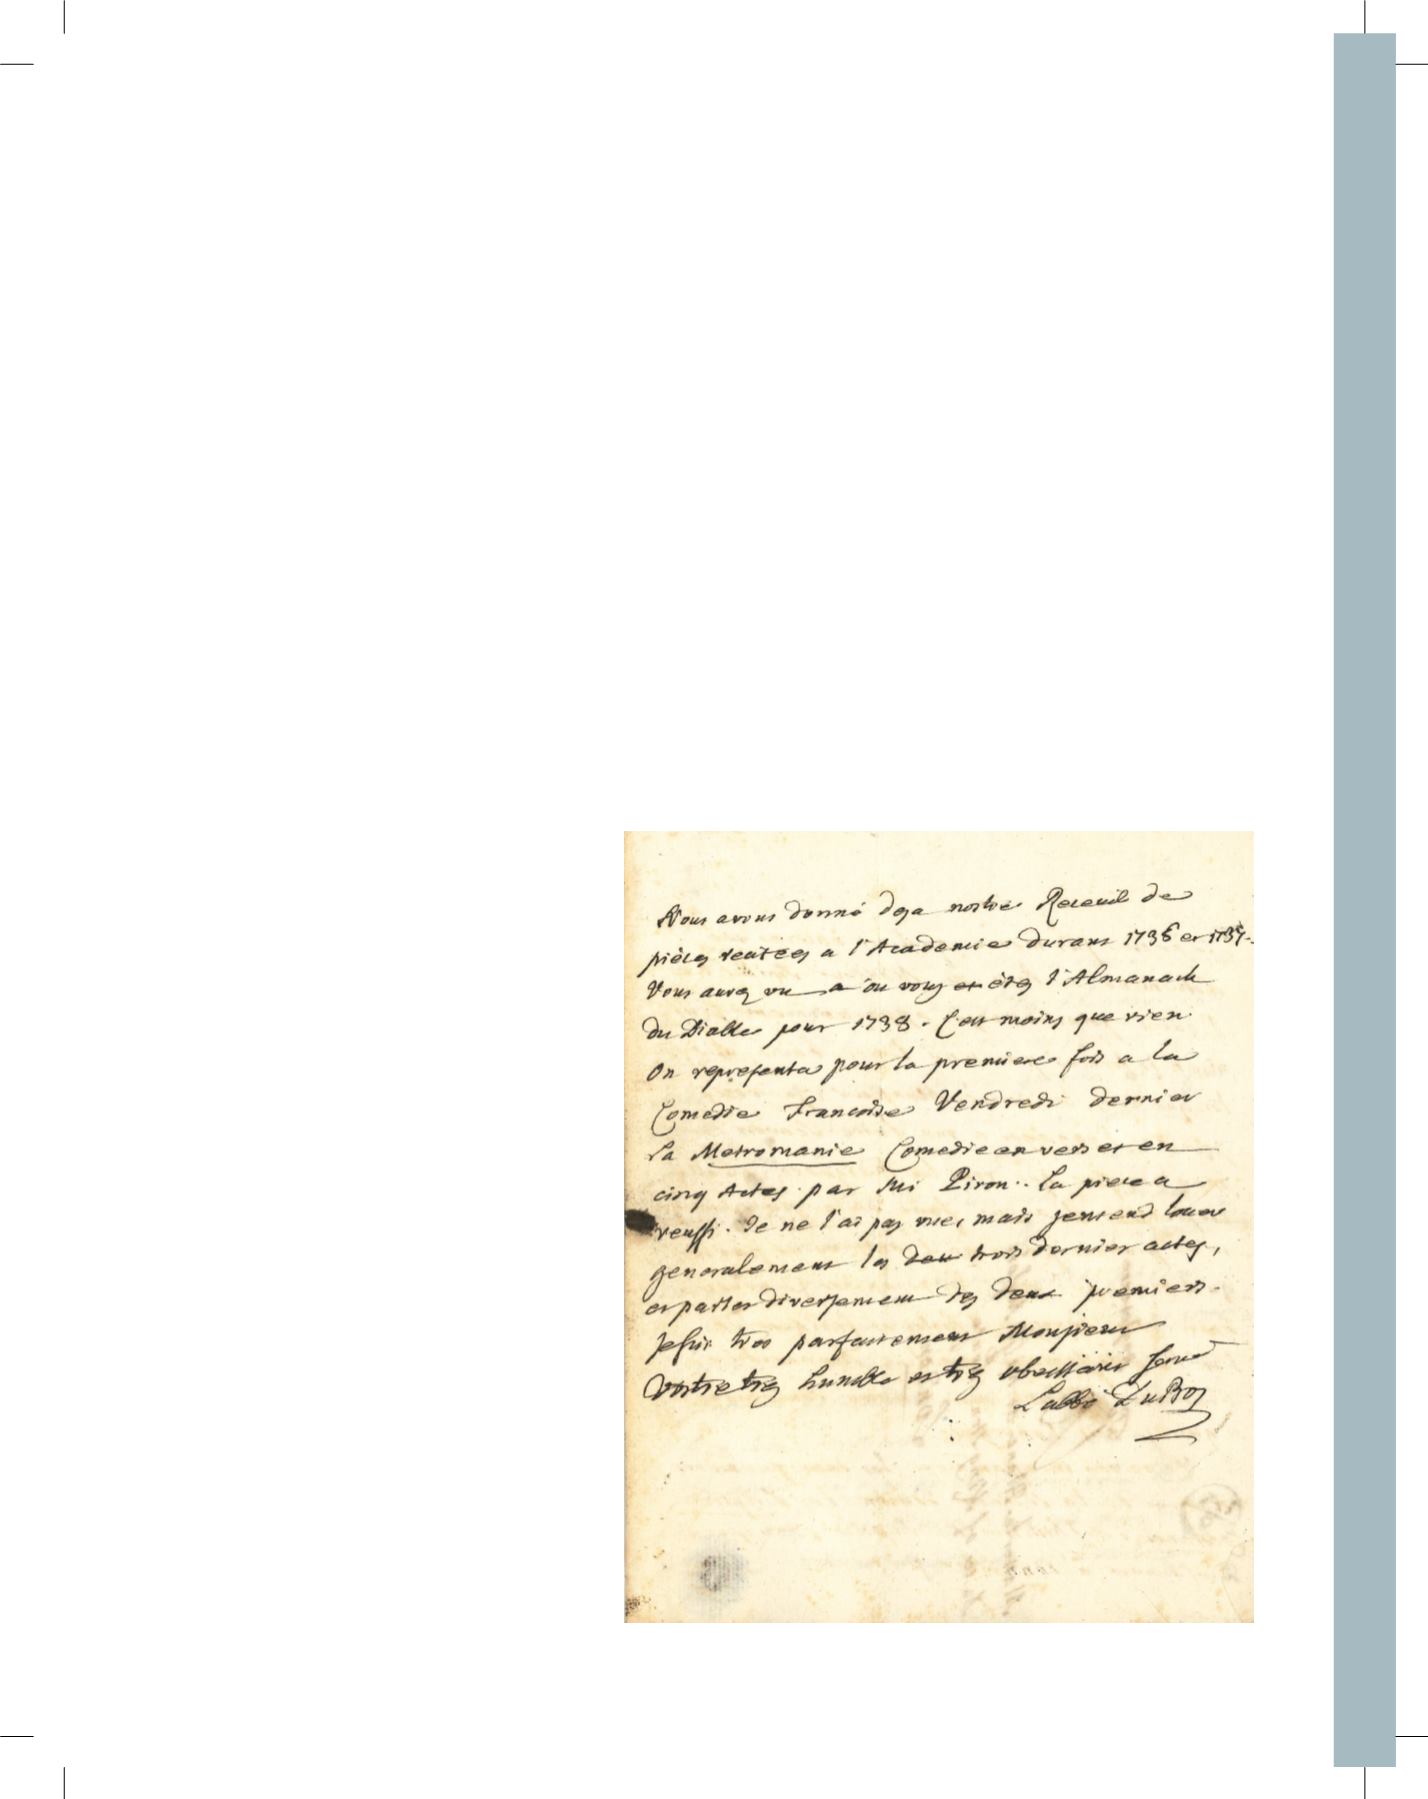 Nous avons donné deja nostre Receuil de
pièces recitées a l'Academie durant 1736 et 1737.
Vous aurez vu a ou vous etes l'Almanach
du Diable pour 1738. C'est moins que rien.
On representa pour la premiere fois a la
Comedie Francoise Vendredi dernier
la Metromanie Comedie en vers et en
cinq Actes par Piron.. la piece a
reussi. Je ne l'ai pas mais jentend louer
generalement les trois dernier actes,
et parler diversement des deux premiers.
Je suis tres parfaitement Monsieur
Vostre tres humble et tres obeissant
Labbé DuBos